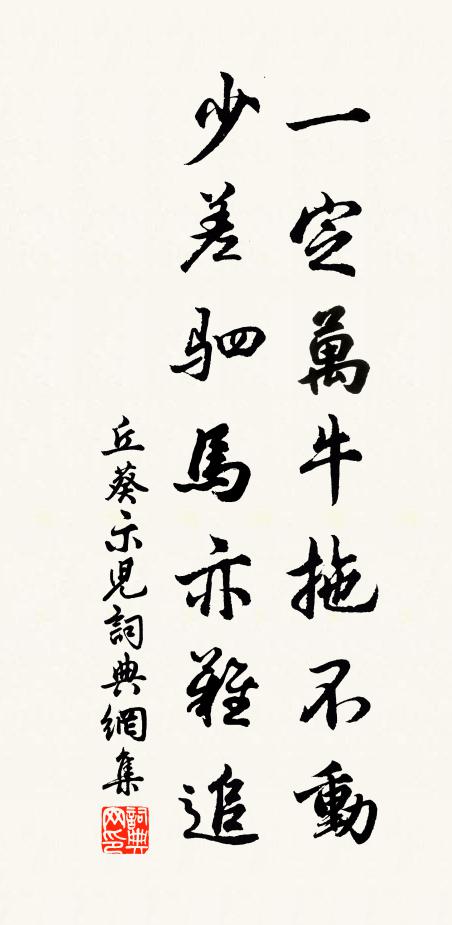 一定萬牛拖不動
少差驷馬亦難追
丘葵示児詞典網集
詞典网印